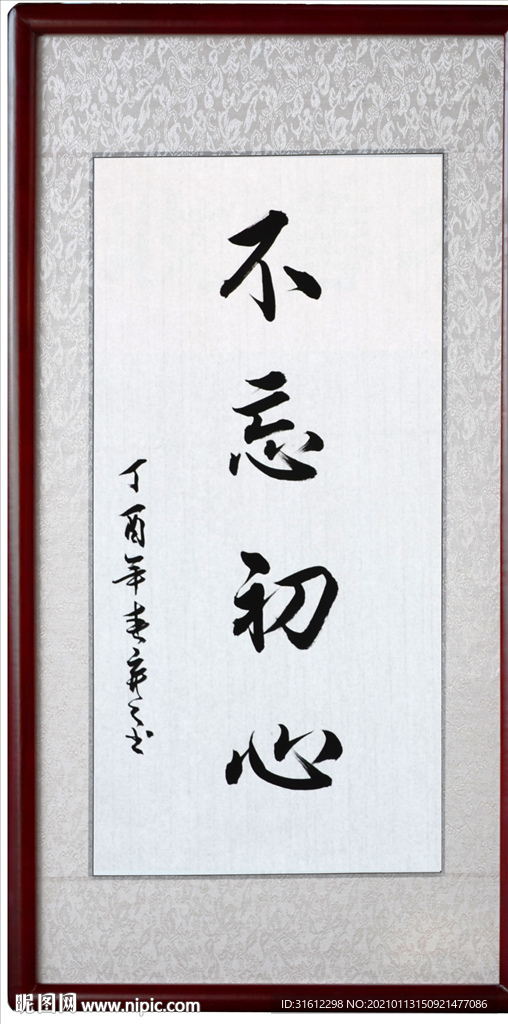 不忘初心
丁酉年春奔之书
昵图网 www.nipic.com
ID:31612298 NO:20210113150921477086